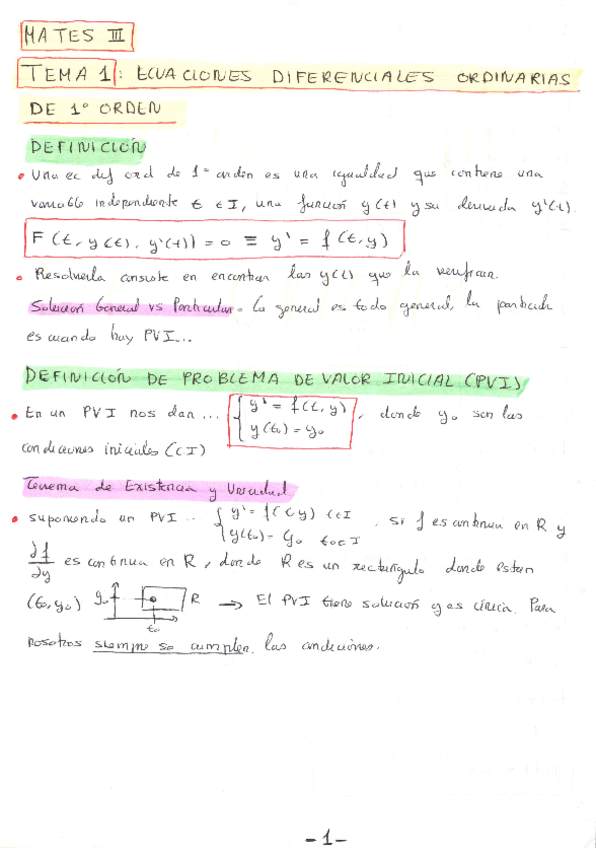 MATES III
TEMA 1: ECUACIONES DIFERENCIALES ORDINARIAS
DE 1º ORDEN
DEFINICIÓN
• Una ec dif ord de 1er orden es una igualdad que contiene una
variable independiente t ∈ I, una función y(t) y su derivada y'(t).
F(t, y(t), y'(t)) = 0 ≡ y' = f(t,y)
• Resolverla consiste en encontrar las y(t) que la verifican.
Solución General vs Particular. La general es todo general, la particular
es cuando hay PVI...
DEFINICIÓN DE PROBLEMA DE VALOR INICIAL (PVI)
• En un PVI nos dan ... { y' = f(t, y) , donde y₀ son las
y(t₀) = y₀
condiciones iniciales (CI)
Teorema de Existencia y Unicidad
• suponiendo un PVI ... { y' = f(t, y) t∈I . Si f es continua en R y
y(t₀) = y₀ t₀∈I
∂f/∂y es continua en R, donde R es un rectángulo donde estan
(t₀, y₀) y₀ R → El PVI tiene solución y es única. Para
t₀
nosotros siempre se cumplen las condiciones.
-1-